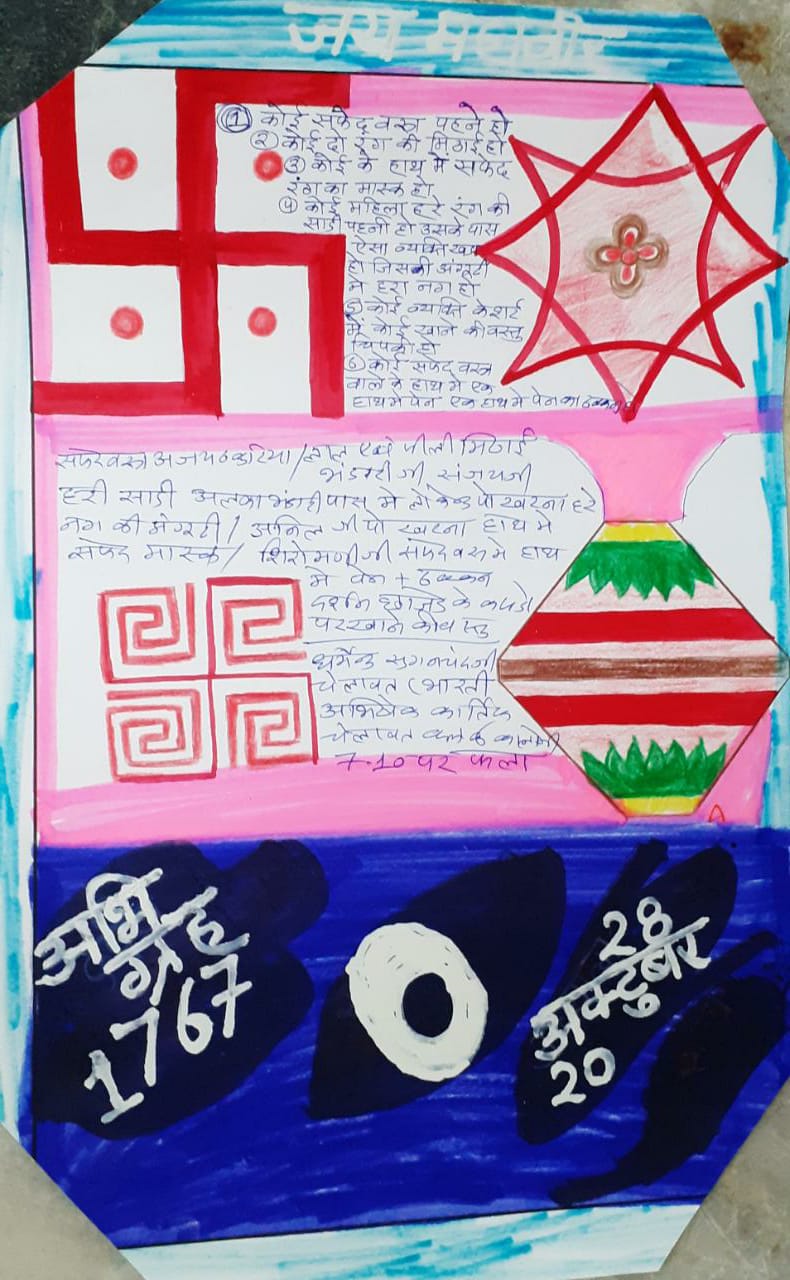 जय महावीर
① कोई सफेद वस्त्र पहने हो
② कोई दो रंग की मिठाई हो
③ कोई के हाथ मे सफेद
रंग का मास्क हो
④ कोई महिला हरे रंग की
साडी पहनी हो उसके पास
ऐसा व्यक्ति खड़ा
हो जिसकी अंगूठी
मे हरा नग हो
⑤ कोई व्यक्ति के शर्ट
में कोई खाने की वस्तु
चिपकी हो
⑥ कोई सफेद वस्त्र
वाले के हाथ मे एक
हाथ मे पेन एक हाथ मे पेन का ढक्कन हो
सफेद वस्त्र अजय / लाल एवं पीली मिठाई
भंडारी जी संजयजी
हरी साडी अलका भंडारी पास मे पोखरना हरे
नग की अंगूठी / अनिल जी पोखरना हाथ मे
सफेद मास्क / शिरोमणी जी सफेद वस्त्र मे हाथ
मे पेन + ढक्कन
के कपडो
पर खाने की वस्तु
सुगनचंदजी
चेलावत (भारती
अभिषेक कार्तिक
चेलावत कालोनी
7-10 पर फला
अभि
ग्रह
1767
28
अक्टुबर
20